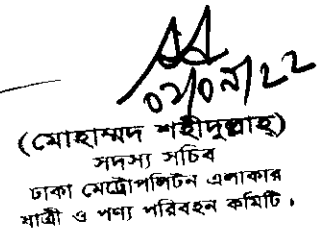 ০২/০৯/২২
(মোহাম্মদ শহীদুল্লাহ্)
সদস্য সচিব
ঢাকা মেট্রোপলিটন এলাকার
যাত্রী ও পণ্য পরিবহন কমিটি।